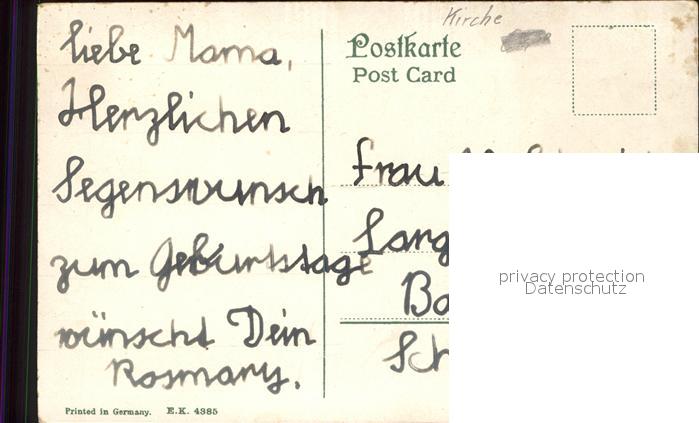 Kirche
liebe Mama,
Herzlichen
Segenswunsch
zum Geburtstage
wünscht Dein
Rosmary.
Postkarte
Post Card
Frau
Lang
Ba
Sch
privacy protection
Datenschutz
Printed in Germany. E.K. 4385